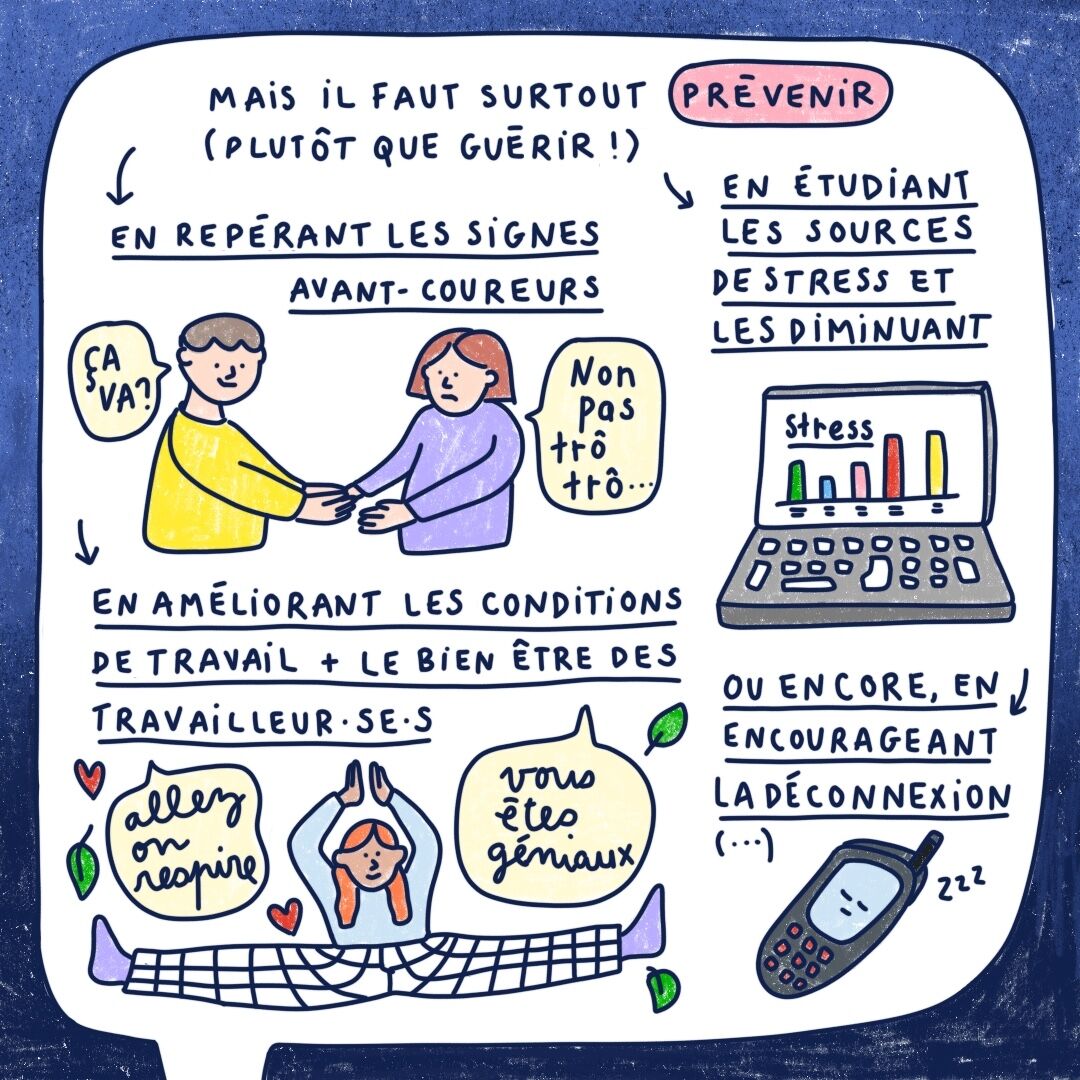 MAiS iL FAUT SURTOUT PRÉVENiR
(PLUTÔT QUE GUÉRiR !)
EN REPÉRANT LES SiGNES
AVANT-COUREURS
ÇA
VA?
Non
pas
trô
trô...
EN ÉTUDIANT
LES SOURCES
DE STRESS ET
LES DIMINUANT
Stress
EN AMÉLiORANT LES CONDITIONS
DE TRAVAiL + LE BiEN ÊTRE DES
TRAVAiLLEUR·SE·S
allez
on
respire
vous
êtes
géniaux
OU ENCORE, EN
ENCOURAGEANT
LA DÉCONNEXiON
(...)
zzz